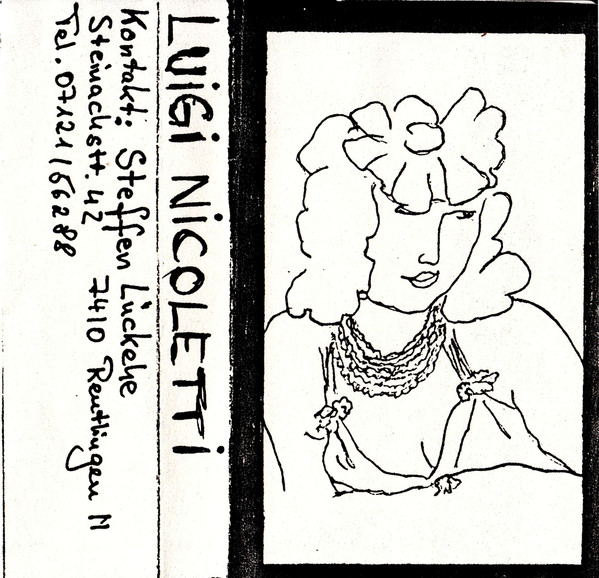 LUiGi NiCOLETTi
Kontakt: Steffen Lückehe
Steinachstr. 42 7410 Reutlingen 11
Tel. 07121/56288